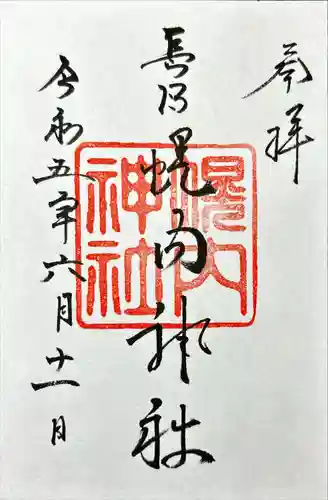 奉拝
長沼
幌内神社
令和五年六月十一日
幌内
神社